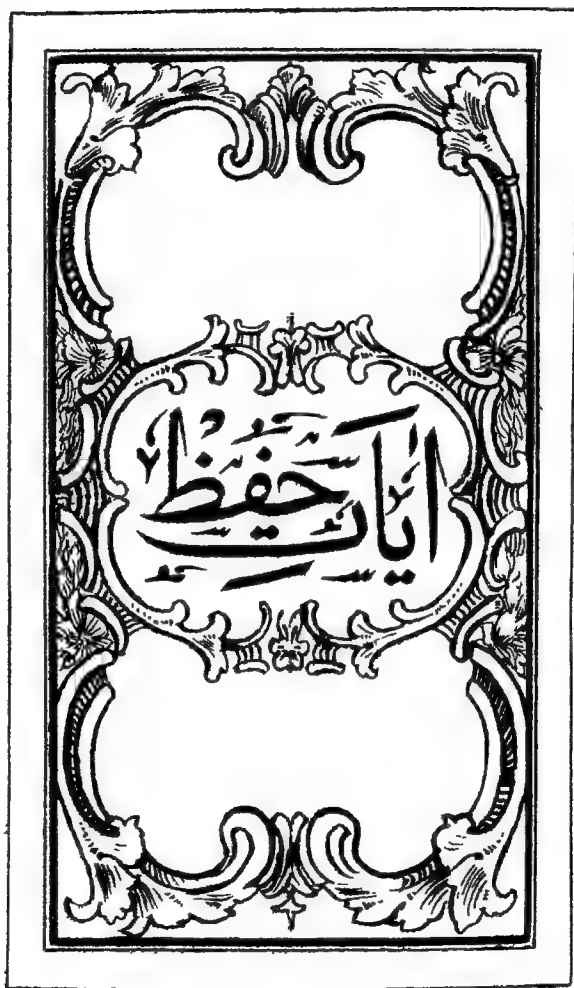 ایات حفظ